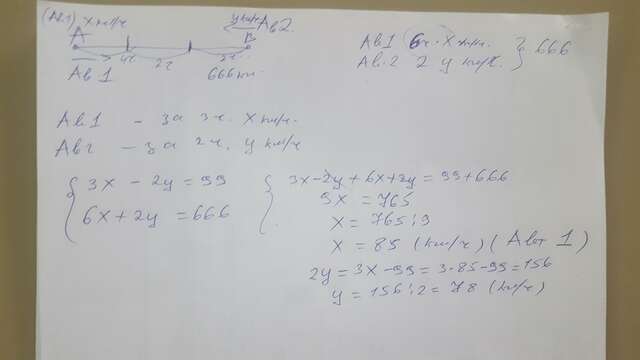 (Ав1) x км/ч
y км/ч Ав2
A B
Ав 1 4ч 2ч 2ч 666 км.
Ав1 6ч. x км/ч. } 666
Ав.2 2 y км/ч. }
Ав1 - за 3ч. x км/ч.
Ав2 - за 2ч. y км/ч
{ 3x - 2y = 99
{ 6x + 2y = 666
{ 3x - 2y + 6x + 2y = 99 + 666
9x = 765
x = 765 : 9
x = 85 (км/ч) (Авт 1)
2y = 3x - 99 = 3·85 - 99 = 156
y = 156 : 2 = 78 (км/ч)